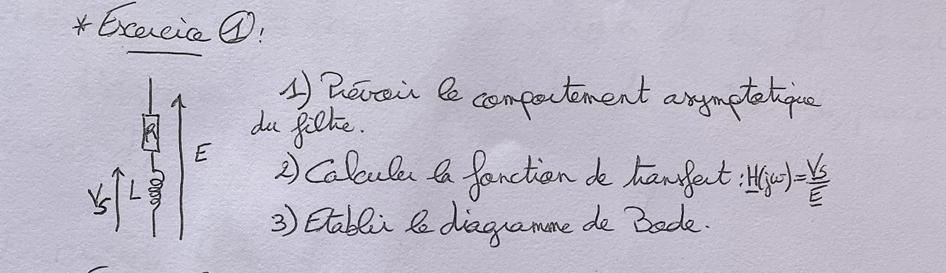 * Exercice 1:
1) Prévoir le comportement asymptotique
du filtre.
R
E
2) Calculer la fonction de transfert : H(jω) = Vs/E
Vs L
3) Etablir le diagramme de Bode.